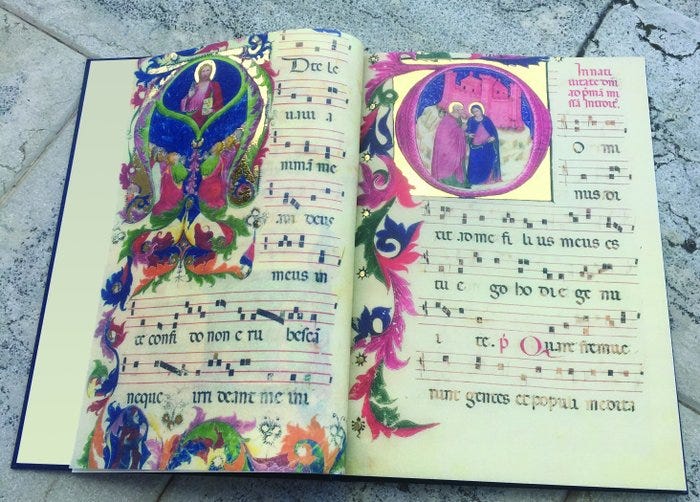 A D te le
uaui a
nimã me
am deus
meus in
te confi do non e ru bescã
neque irri deant me ini
In nati
uitate dñi
ad p̃mã mi
ssã Introit̃.
D O mi
nus di
xit ad me fi li us meus es
tu e go ho di e ge nu
i te. p̃ Quare fremue
runt gentes et populi medita